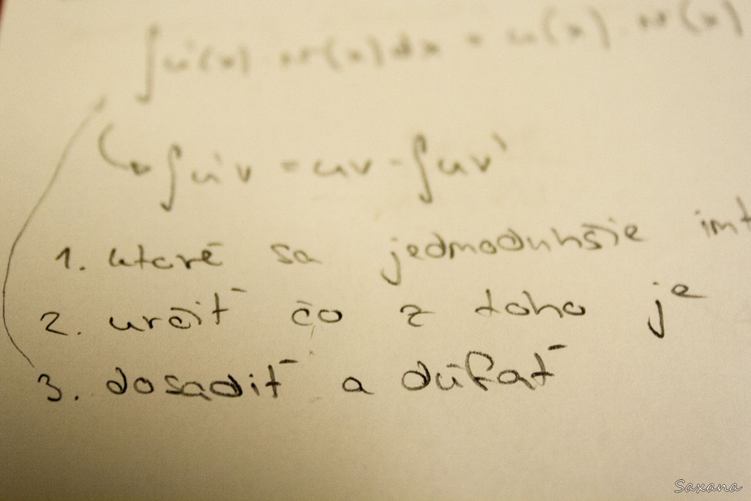 ∫u'(x) . v(x) dx = u(x) . v(x)
∫u'v = uv - ∫uv'
1. ktoré sa jednoduhšie int
2. určiť čo z toho je
3. dosadiť a dúfať
Saxana